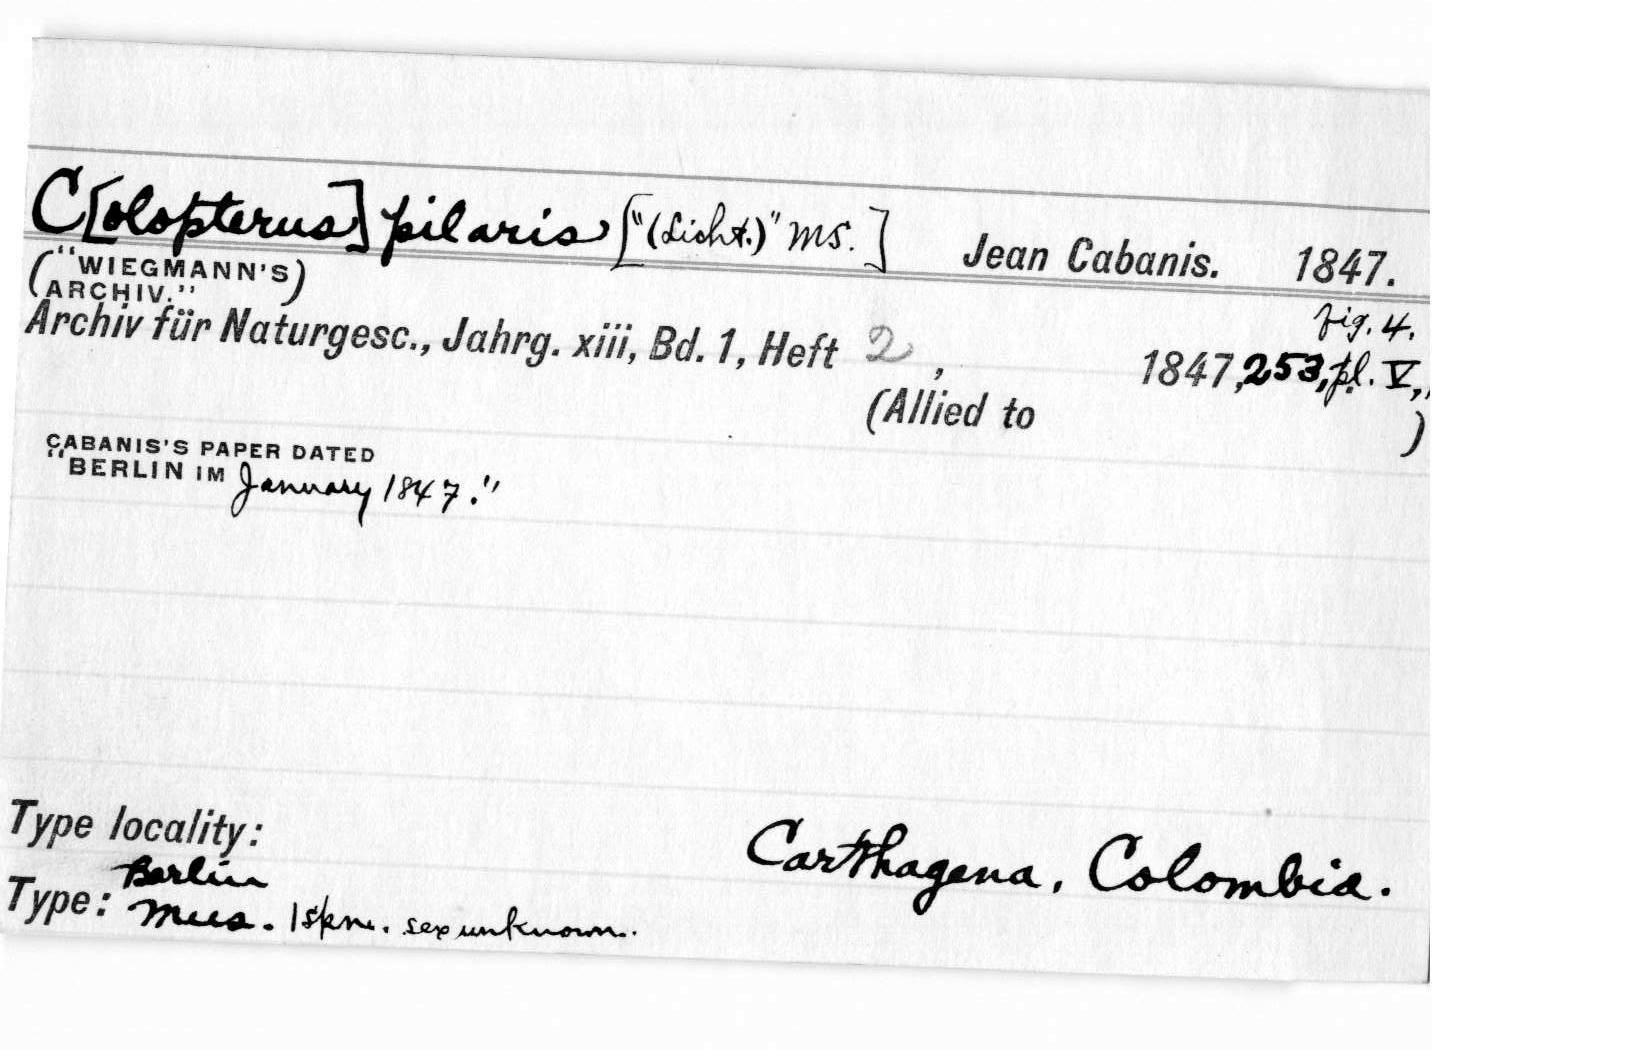 C[olopterus] pilaris ["(Licht.)" MS.] Jean Cabanis. 1847.
("WIEGMANN'S
ARCHIV.")
fig. 4.
Archiv für Naturgesc., Jahrg. xiii, Bd. 1, Heft 2, 1847, 253, pl. V,,
(Allied to )
CABANIS'S PAPER DATED
"BERLIN IM January 1847."
Type locality: Carthagena, Colombia.
Berlin
Type: Mus. 1 spm. sex unknown.